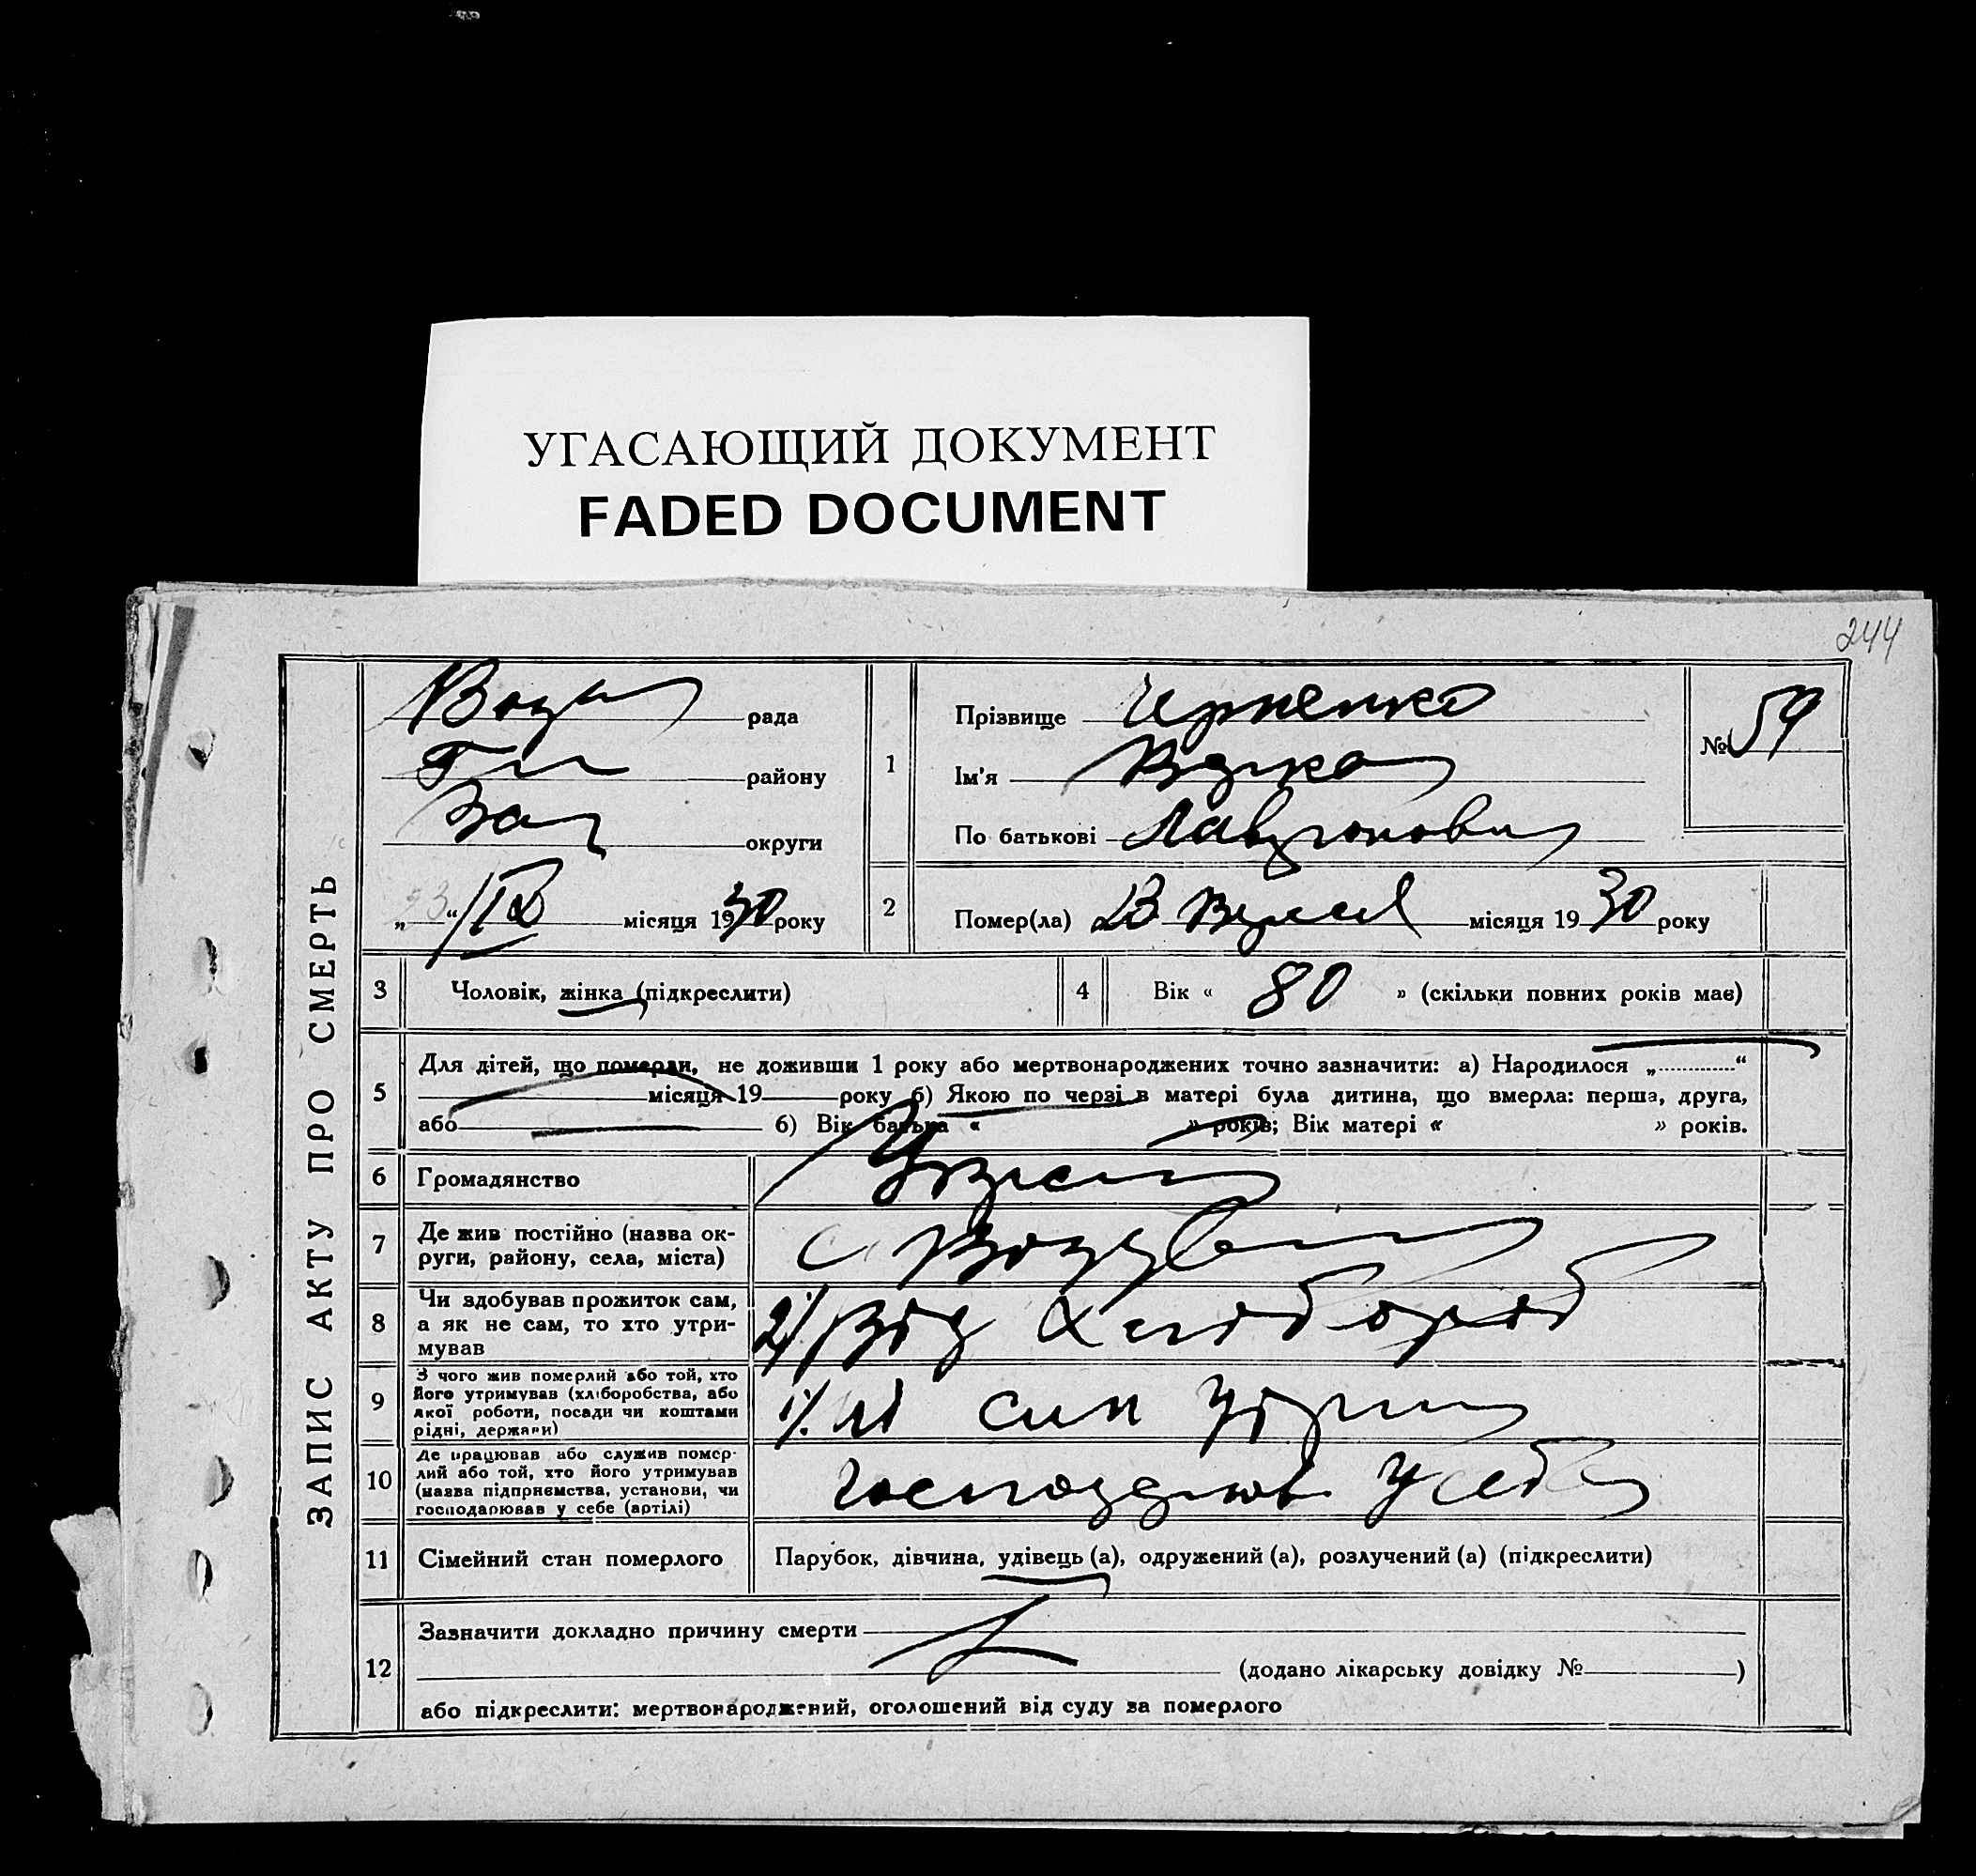 УГАСАЮЩИЙ ДОКУМЕНТ
FADED DOCUMENT
244
ЗАПИС АКТУ ПРО СМЕРТЬ
рада
району
округи
„ “ /ІХ місяця 1930 року
1
Прізвище Черненко
Ім'я
По батькові
№ 59
2
Помер(ла) 23 місяця 1930 року
3
Чоловік, жінка (підкреслити)
4
Вік « 80 » (скільки повних років має)
5
Для дітей, що померли, не доживши 1 року або мертвонароджених точно зазначити: а) Народилося „ “
місяця 19 року б) Якою по черзі в матері була дитина, що вмерла: перша, друга,
або 6) Вік батька « » років; Вік матері « » років.
6
Громадянство
7
Де жив постійно (назва ок-
руги, району, села, міста)
с.
8
Чи здобував прожиток сам,
а як не сам, то хто утри-
мував
2/ Від хлібороб
9
З чого жив померлий або той, хто
його утримував (хліборобства, або
якої роботи, посади чи коштами
рідні, держави)
1/ син
10
Де працював або служив помер-
лий або той, хто його утримував
(назва підприємства, установи, чи
господарював у себе (артілі)
у себе
11
Сімейний стан померлого
Парубок, дівчина, удівець (а), одружений (а), розлучений (а) (підкреслити)
12
Зазначити докладно причину смерти
(додано лікарську довідку № )
або підкреслити: мертвонароджений, оголошений від суду за померлого